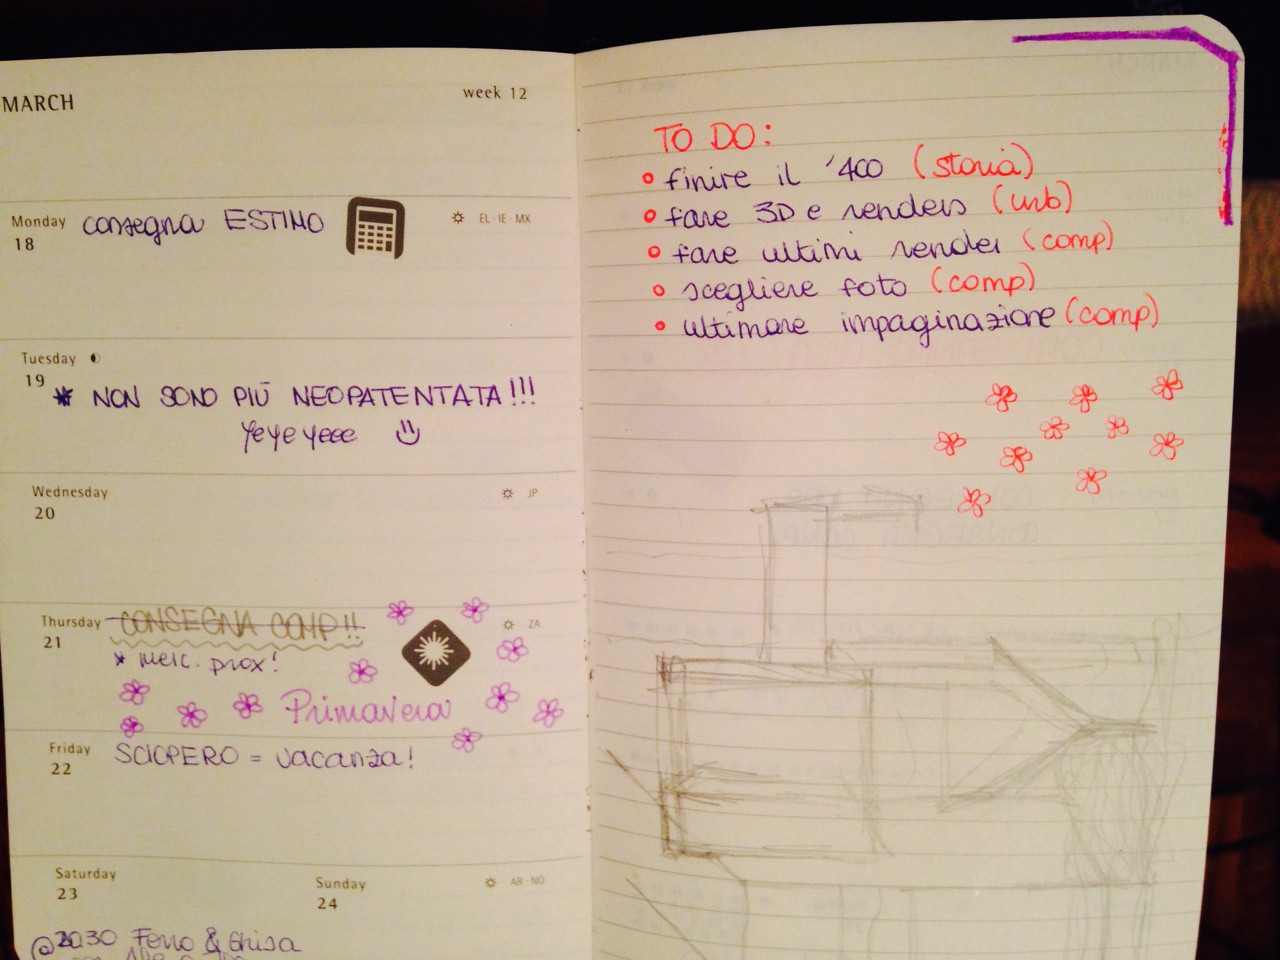 MARCH
week 12
Monday
18
consegna ESTIMO
EL·IE·MX
Tuesday
19
* NON SONO PIÙ NEOPATENTATA!!!
yeyeyeee
Wednesday
20
JP
Thursday
21
CONSEGNA COMP!!
ZA
* merc. prox!
Primavera
Friday
22
SCIOPERO = vacanza!
Saturday
23
Sunday
24
AR·NO
Ferro & Ghisa
TO DO:
finire il '400 (storia)
fare 3D e renders (urb)
fare ultimi render (comp)
scegliere foto (comp)
ultimare impaginazione (comp)